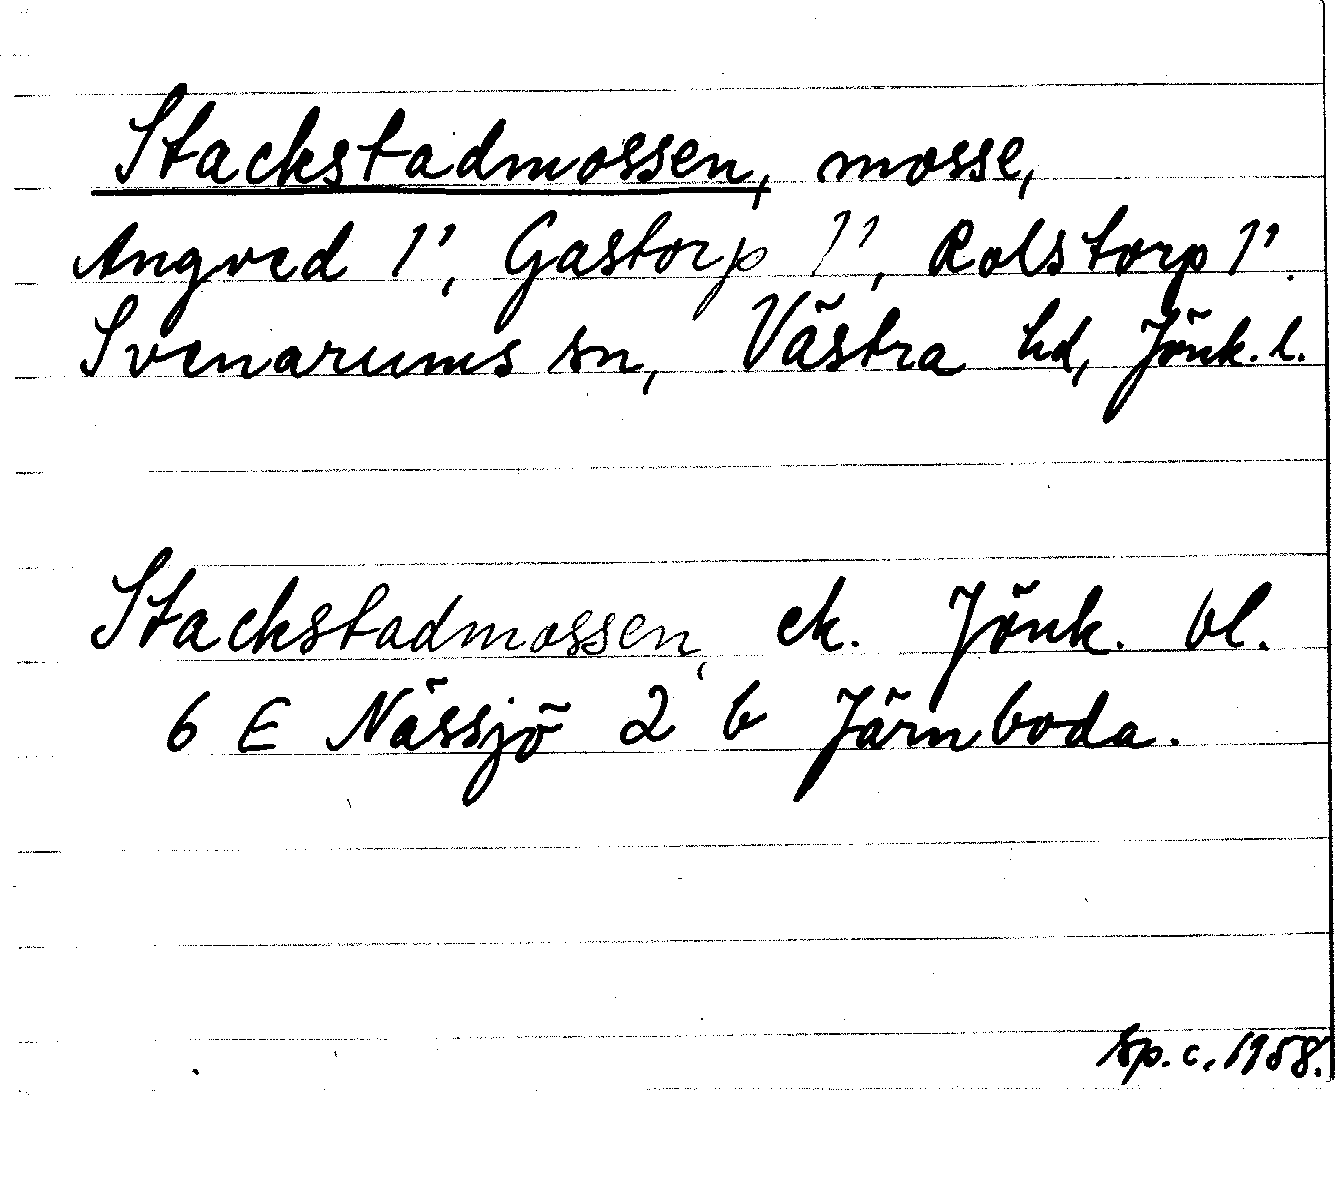 Stackstadmossen, mosse,
Angved 1¹, Gastorp 1¹, Rolstorp 1¹.
Svenarums sn, Västra hd, Jönk. l.
Stackstadmossen, ek. Jönk. bl.
6 E Nässjö 2 b Järnboda.
Sp. c. 1958.